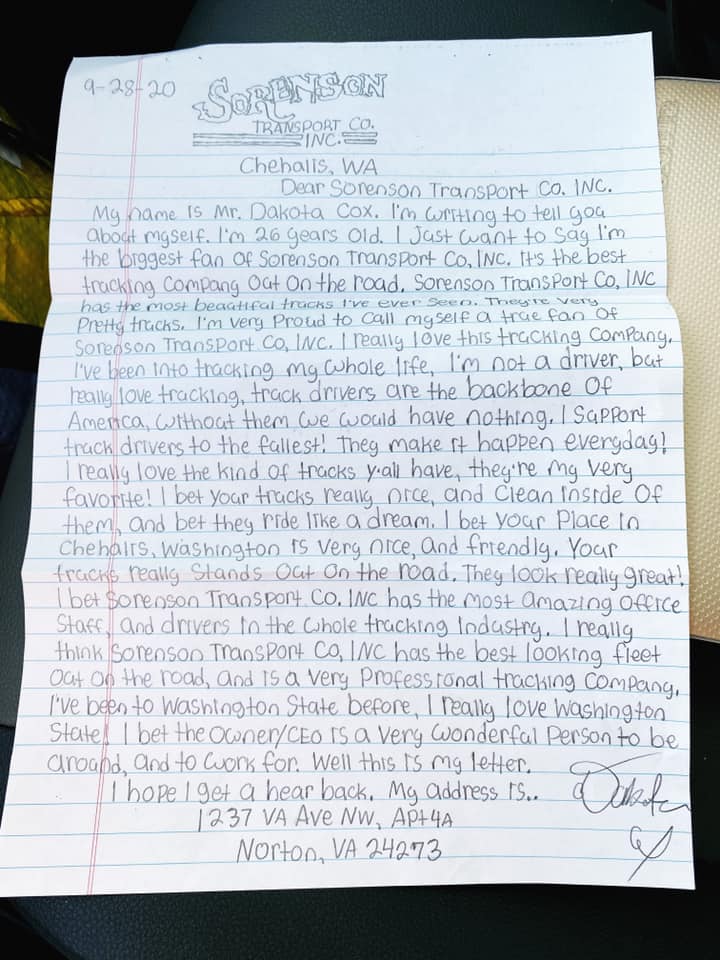 9-28-20
SORENSON
TRANSPORT CO.
INC.
Chehalis, WA
Dear Sorenson Transport Co. INC.
My name is Mr. Dakota Cox. I'm writing to tell you
about myself. I'm 26 years old. I Just want to say I'm
the biggest fan of Sorenson Transport Co, INC. It's the best
trucking Company out on the road. Sorenson Transport Co, INC
has the most beautiful trucks I've ever seen. They're very
Pretty trucks. I'm very Proud to call myself a true fan of
Sorenson Transport Co, INC. I really love this trucking Company.
I've been into trucking my whole life, I'm not a driver, but
really love trucking, truck drivers are the backbone of
America, without them we would have nothing. I support
truck drivers to the fullest! They make it happen everyday!
I really love the kind of trucks y'all have, they're my very
favorite! I bet your trucks really nice, and clean inside of
them, and bet they ride like a dream. I bet your Place in
Chehalis, Washington is very nice, and friendly. Your
trucks really Stands out on the road. They look really great!
I bet Sorenson Transport Co. INC has the most amazing office
Staff, and drivers in the whole trucking Industry. I really
think Sorenson Transport Co, INC has the best looking fleet
out on the road, and is a very Professional trucking Company.
I've been to Washington State before, I really love Washington
State! I bet the owner/CEO is a very wonderful Person to be
around, and to work for. Well this is my letter.
I hope I get a hear back. My address is..
1237 VA Ave NW, Apt 4A
Norton, VA 24273
Dakota
Cox